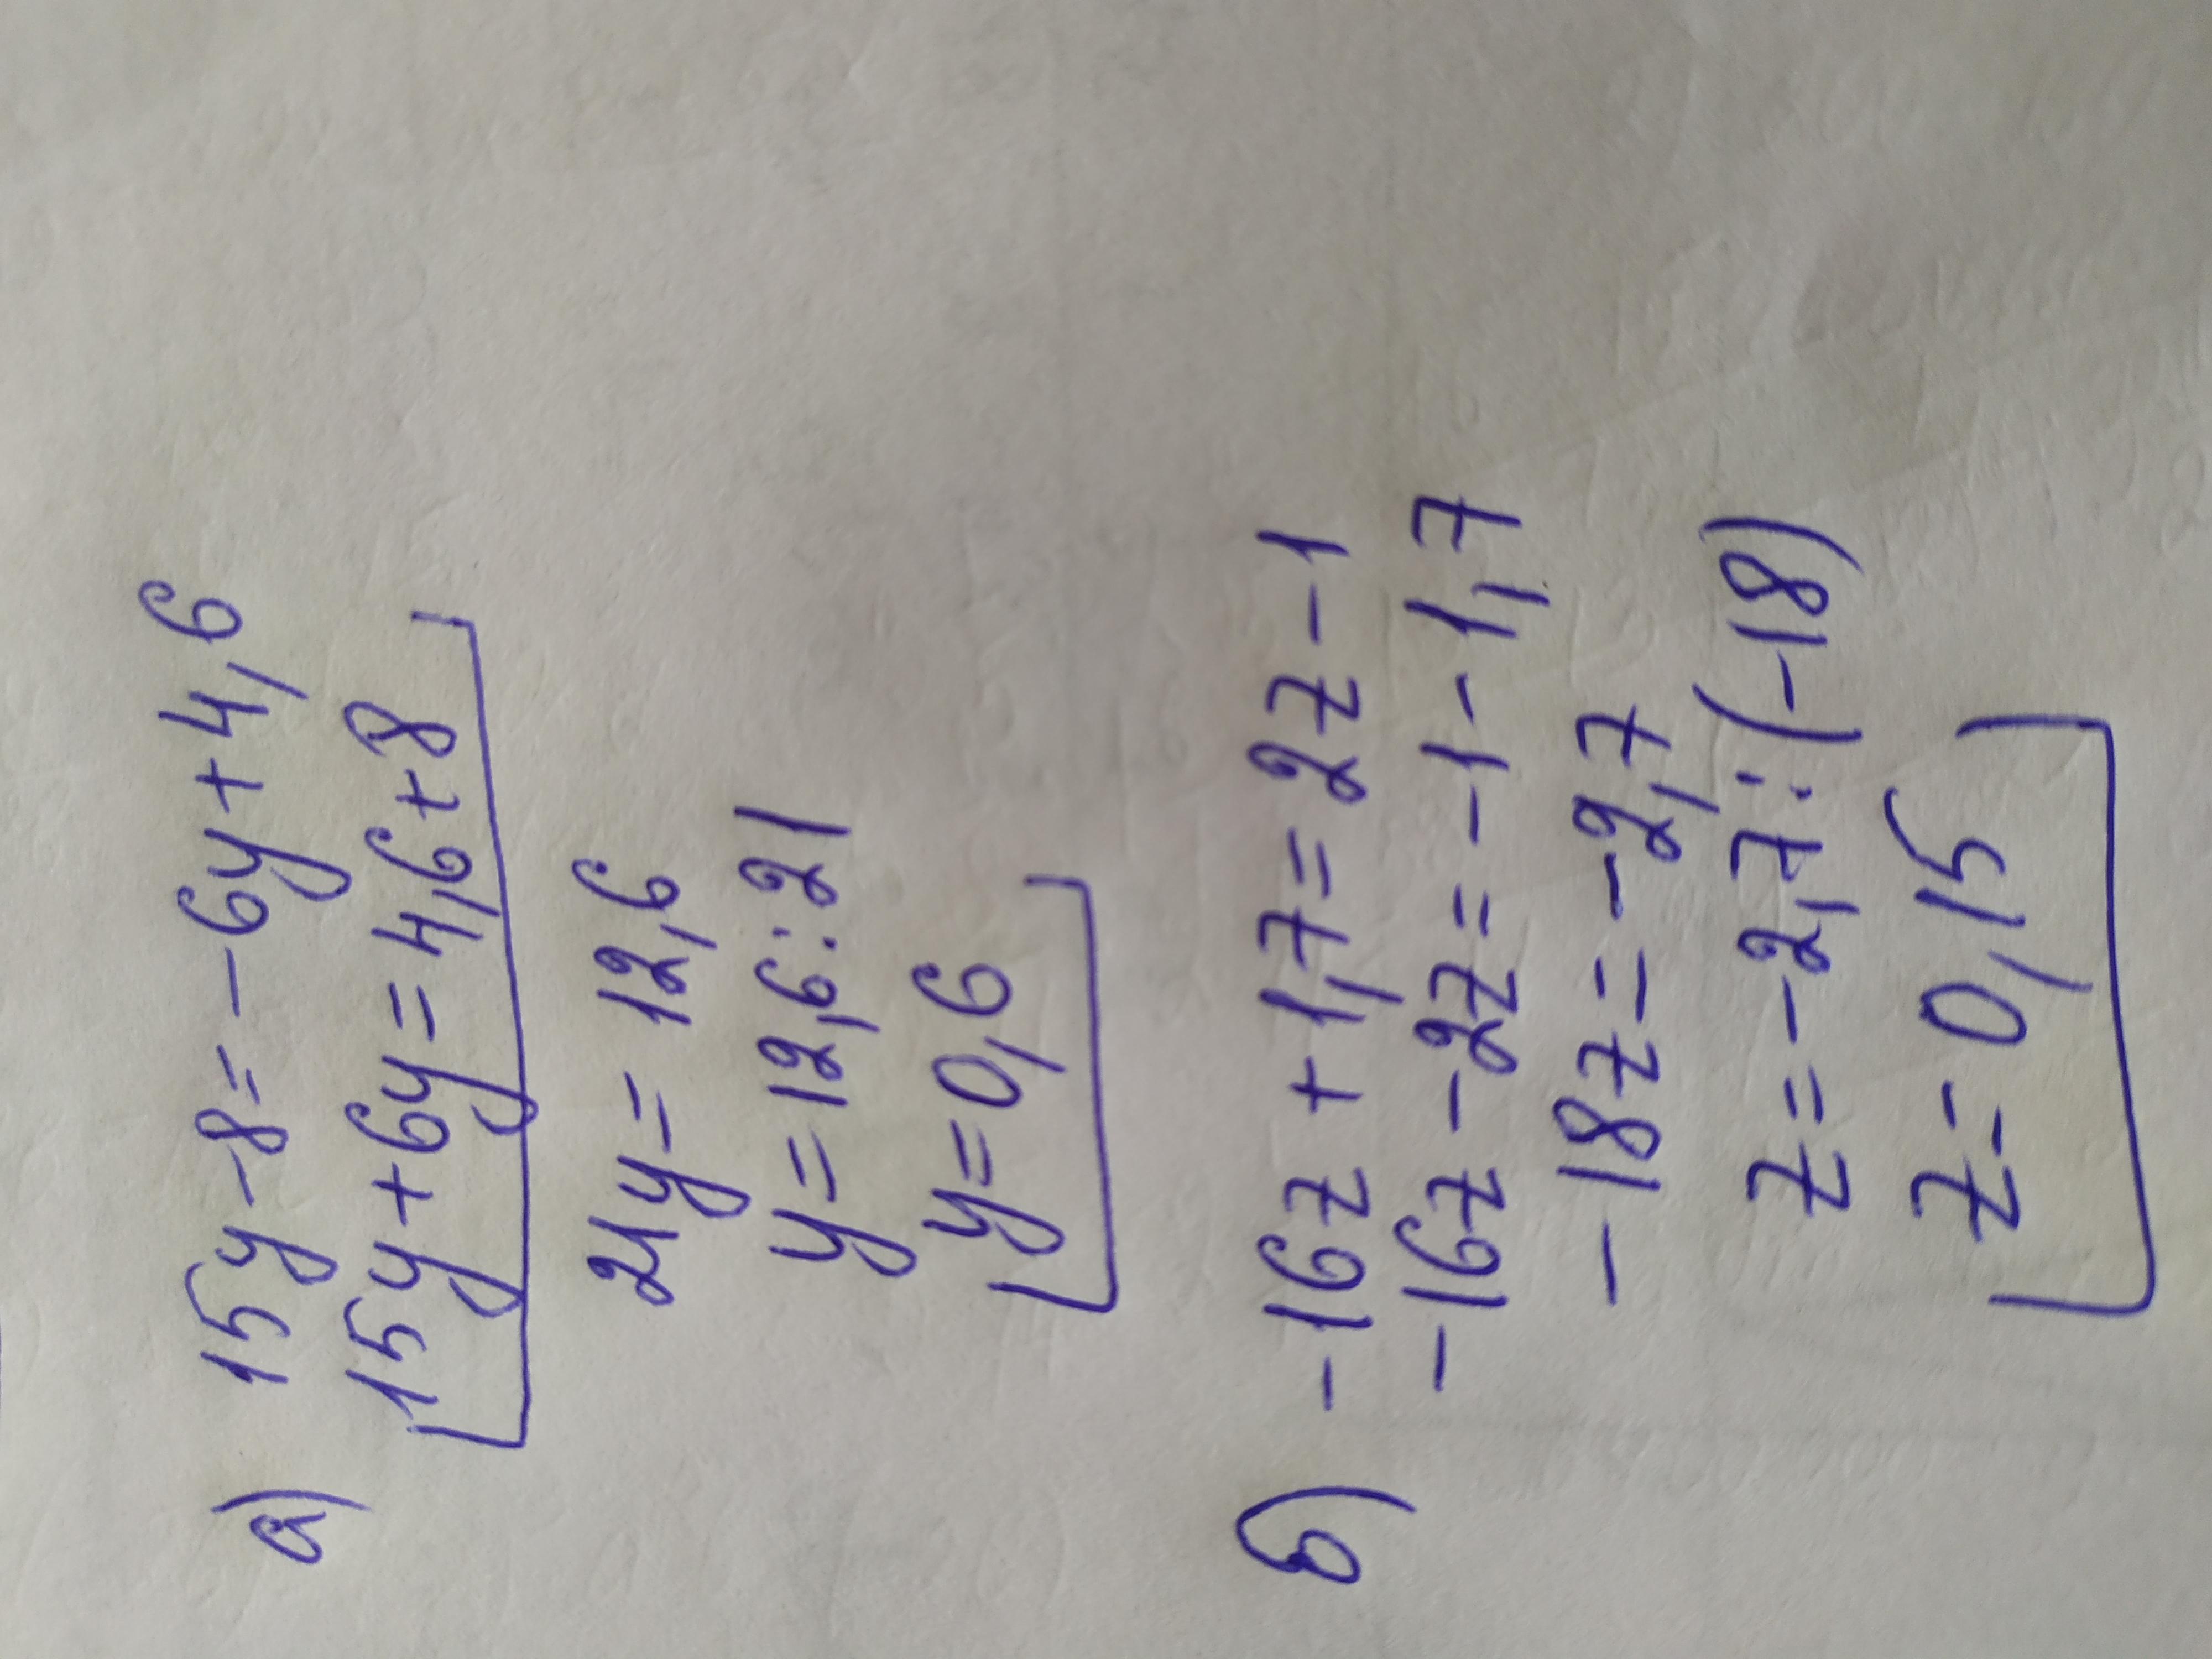 а) 15y-8=-6y+4,6
15y+6y=4,6+8
21y=12,6
y=12,6:21
y=0,6
б) -16z+1,7=2z-1
-16z-2z=-1-1,7
-18z=-2,7
z=-2,7:(-18)
z=0,15